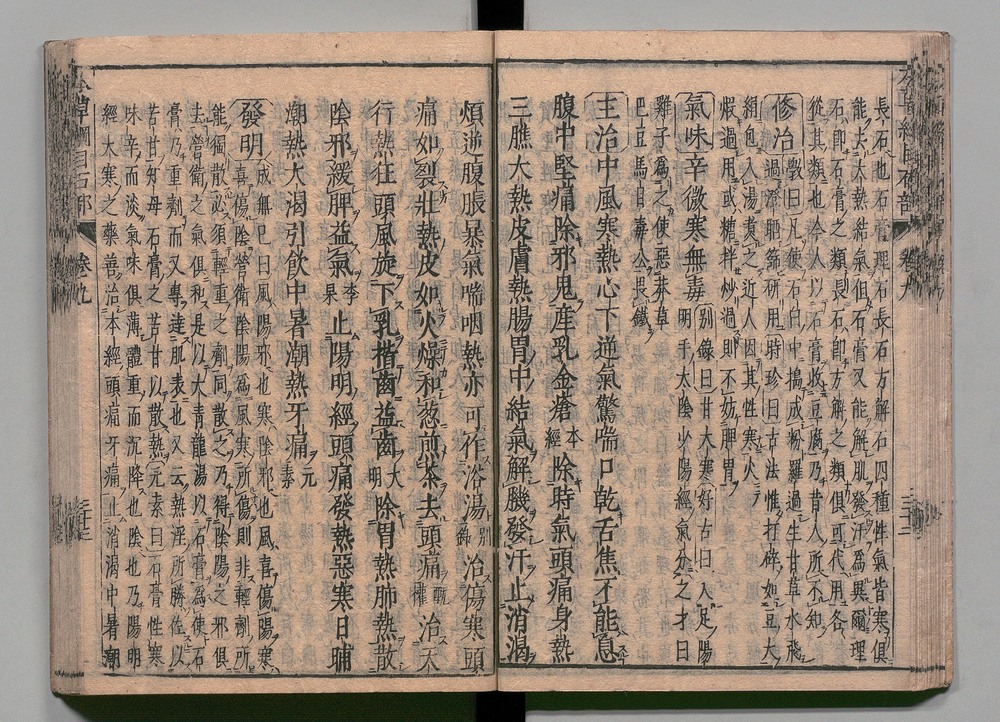 長石也石膏理石長石方解石四種性氣皆寒俱
能去大熱結氣但石膏又能解肌發汗為異爾理
石即石膏之類長石即方解之類俱可代用各
從其類也今人以石膏收豆腐乃昔人所不知
修治斅曰凡使石臼中搗成粉羅過生甘草水飛
過澄晒篩研用時珍曰古法惟打碎如豆大
絹包入湯煮之近人因其性寒火
煅過用或糖拌炒過則不妨脾胃
氣味辛微寒無毒別錄曰甘大寒好古曰入足陽
明手太陰少陽經氣分之才曰
雞子為之使惡莽草
巴豆馬目毒公畏鐵
主治中風寒熱心下逆氣驚喘口乾舌焦不能息
腹中堅痛除邪鬼產乳金瘡本經除時氣頭痛身熱
三膲大熱皮膚熱腸胃中結氣解肌發汗止消渴
煩逆腹脹暴氣喘咽熱亦可作浴湯別錄治傷寒頭
痛如裂壯熱皮如火燥和葱煎茶去頭痛甄權治天
行熱狂頭風旋下乳揩齒益齒大明除胃熱肺熱散
陰邪緩脾益氣李杲止陽明經頭痛發熱惡寒日晡
潮熱大渴引飲中暑潮熱牙痛元素
發明成無已曰風陽邪也寒陰邪也風喜傷陽寒
喜傷陰營衛陰陽為風寒所傷則非輕劑所
能獨散必須輕重之劑同散之乃得陰陽之邪俱
去營衛之氣俱和是以大青龍湯以石膏為使石
膏乃重劑而又專達肌表也又云熱淫所勝佐以
苦甘知母石膏之苦甘以散熱元素曰石膏性寒
味辛而淡氣味俱薄體重而沉降也陰也乃陽明
經大寒之藥善治本經頭痛牙痛止消渴中暑潮
本草綱目石部
卷九
三十三